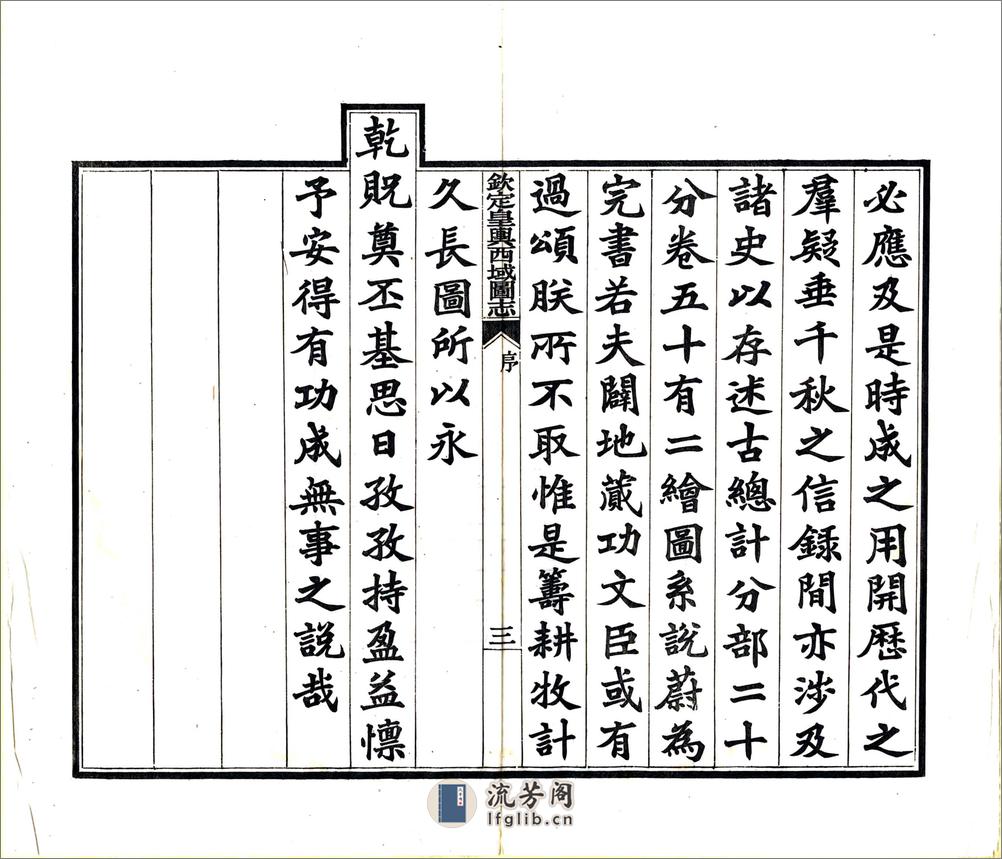 必應及是時成之用開歷代之
羣疑垂千秋之信録間亦涉及
諸史以存述古總計分部二十
分卷五十有二繪圖系說蔚為
完書若夫闢地蕆功文臣或有
過頌朕所不取惟是籌耕牧計
欽定皇輿西域圖志
序
三
久長圖所以永
乾貺奠丕基思日孜孜持盈益懍
予安得有功成無事之説哉
流芳阁
lfglib.cn